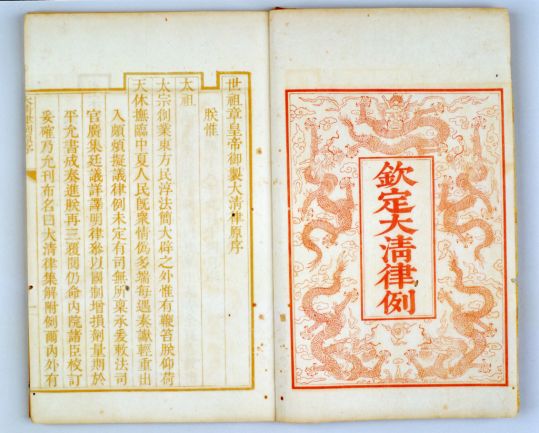 欽定大清律例
世祖章皇帝御製大清律原序
朕惟
太祖
太宗創業東方民淳法簡大辟之外惟有鞭笞朕仰荷
天休撫臨中夏人民旣衆情僞多端每遇奏讞輕重出
入頗煩擬議律例未定有司無所稟承爰敕法司
官廣集廷議詳譯明律參以國制增損劑量期於
平允書成奏進朕再三覆閱仍命內院諸臣校訂
妥確乃允刊布名曰大淸律集解附例爾內外有